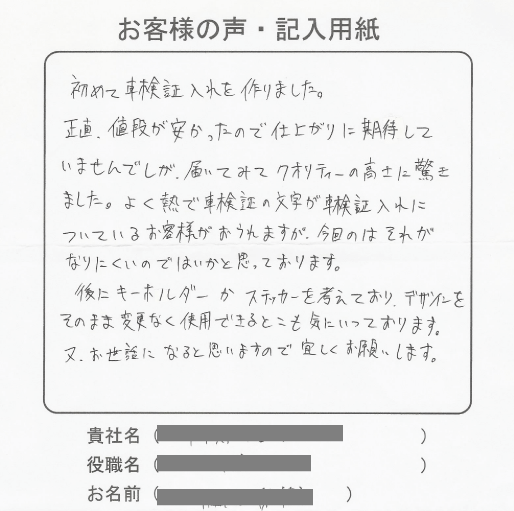 お客様の声・記入用紙
初めて車検証入れを作りました。
正直、値段が安かったので仕上がりに期待して
いませんでしが、届いてみてクオリティーの高さに驚き
ました。よく熱で車検証の文字が車検証入れに
ついているお客様がおられますが、今回のはそれが
なりにくいのではいかと思っております。
後にキーホルダーかステッカーを考えており、デザインを
そのまま変更なく使用できるとこも気にいっております。
又、お世話になると思いますので宜しくお願いします。
貴社名（　　）
役職名（　　）
お名前（　　）